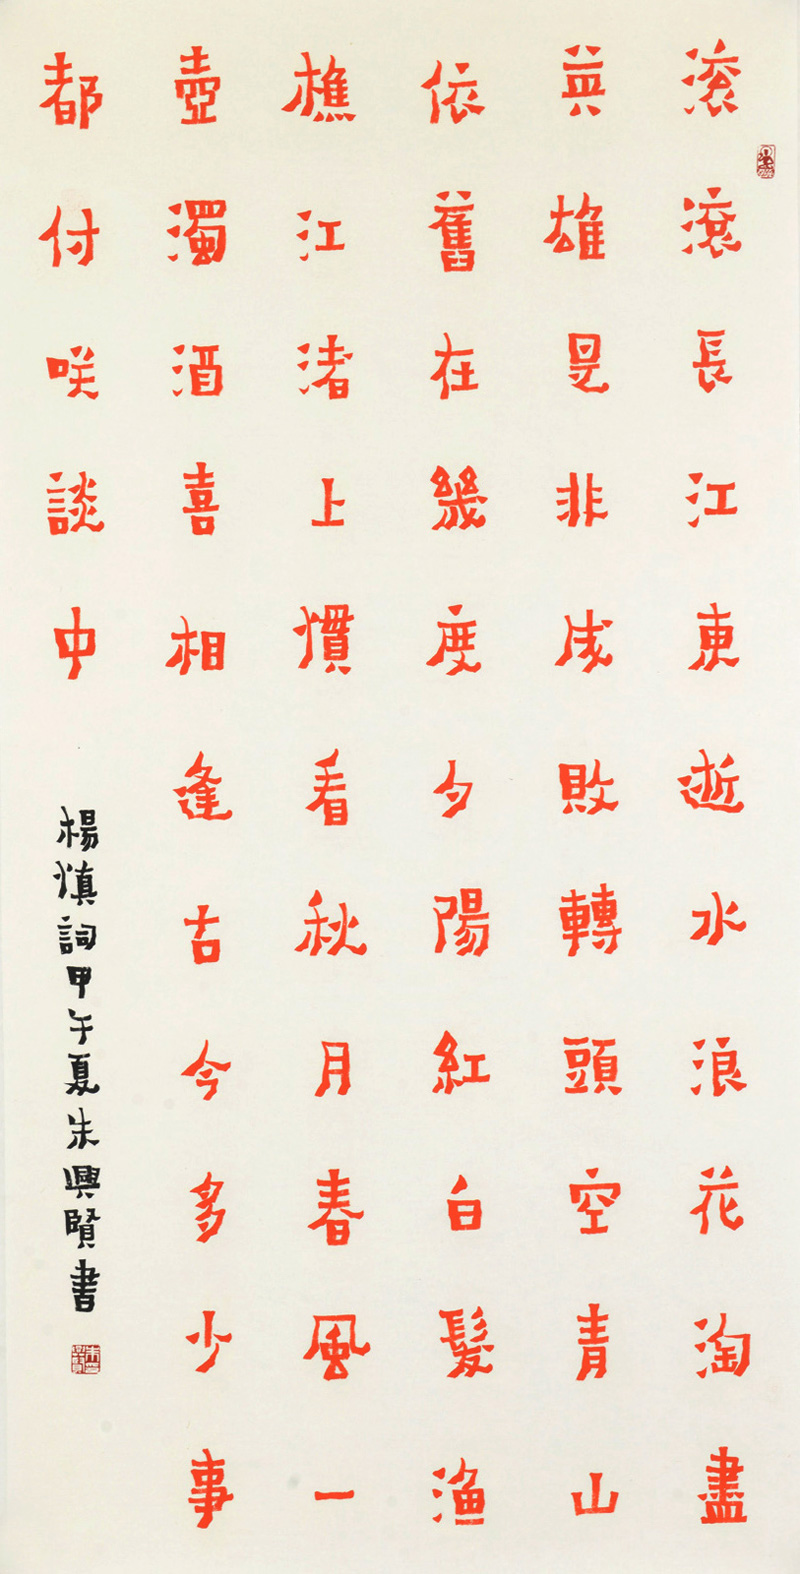 滚滚長江東逝水浪花淘盡
英雄是非成敗轉頭空青山
依舊在幾度夕陽紅白髮渔
樵江渚上慣看秋月春風一
壺濁酒喜相逢古今多少事
都付咲談中
楊慎詞甲午夏朱興賢书